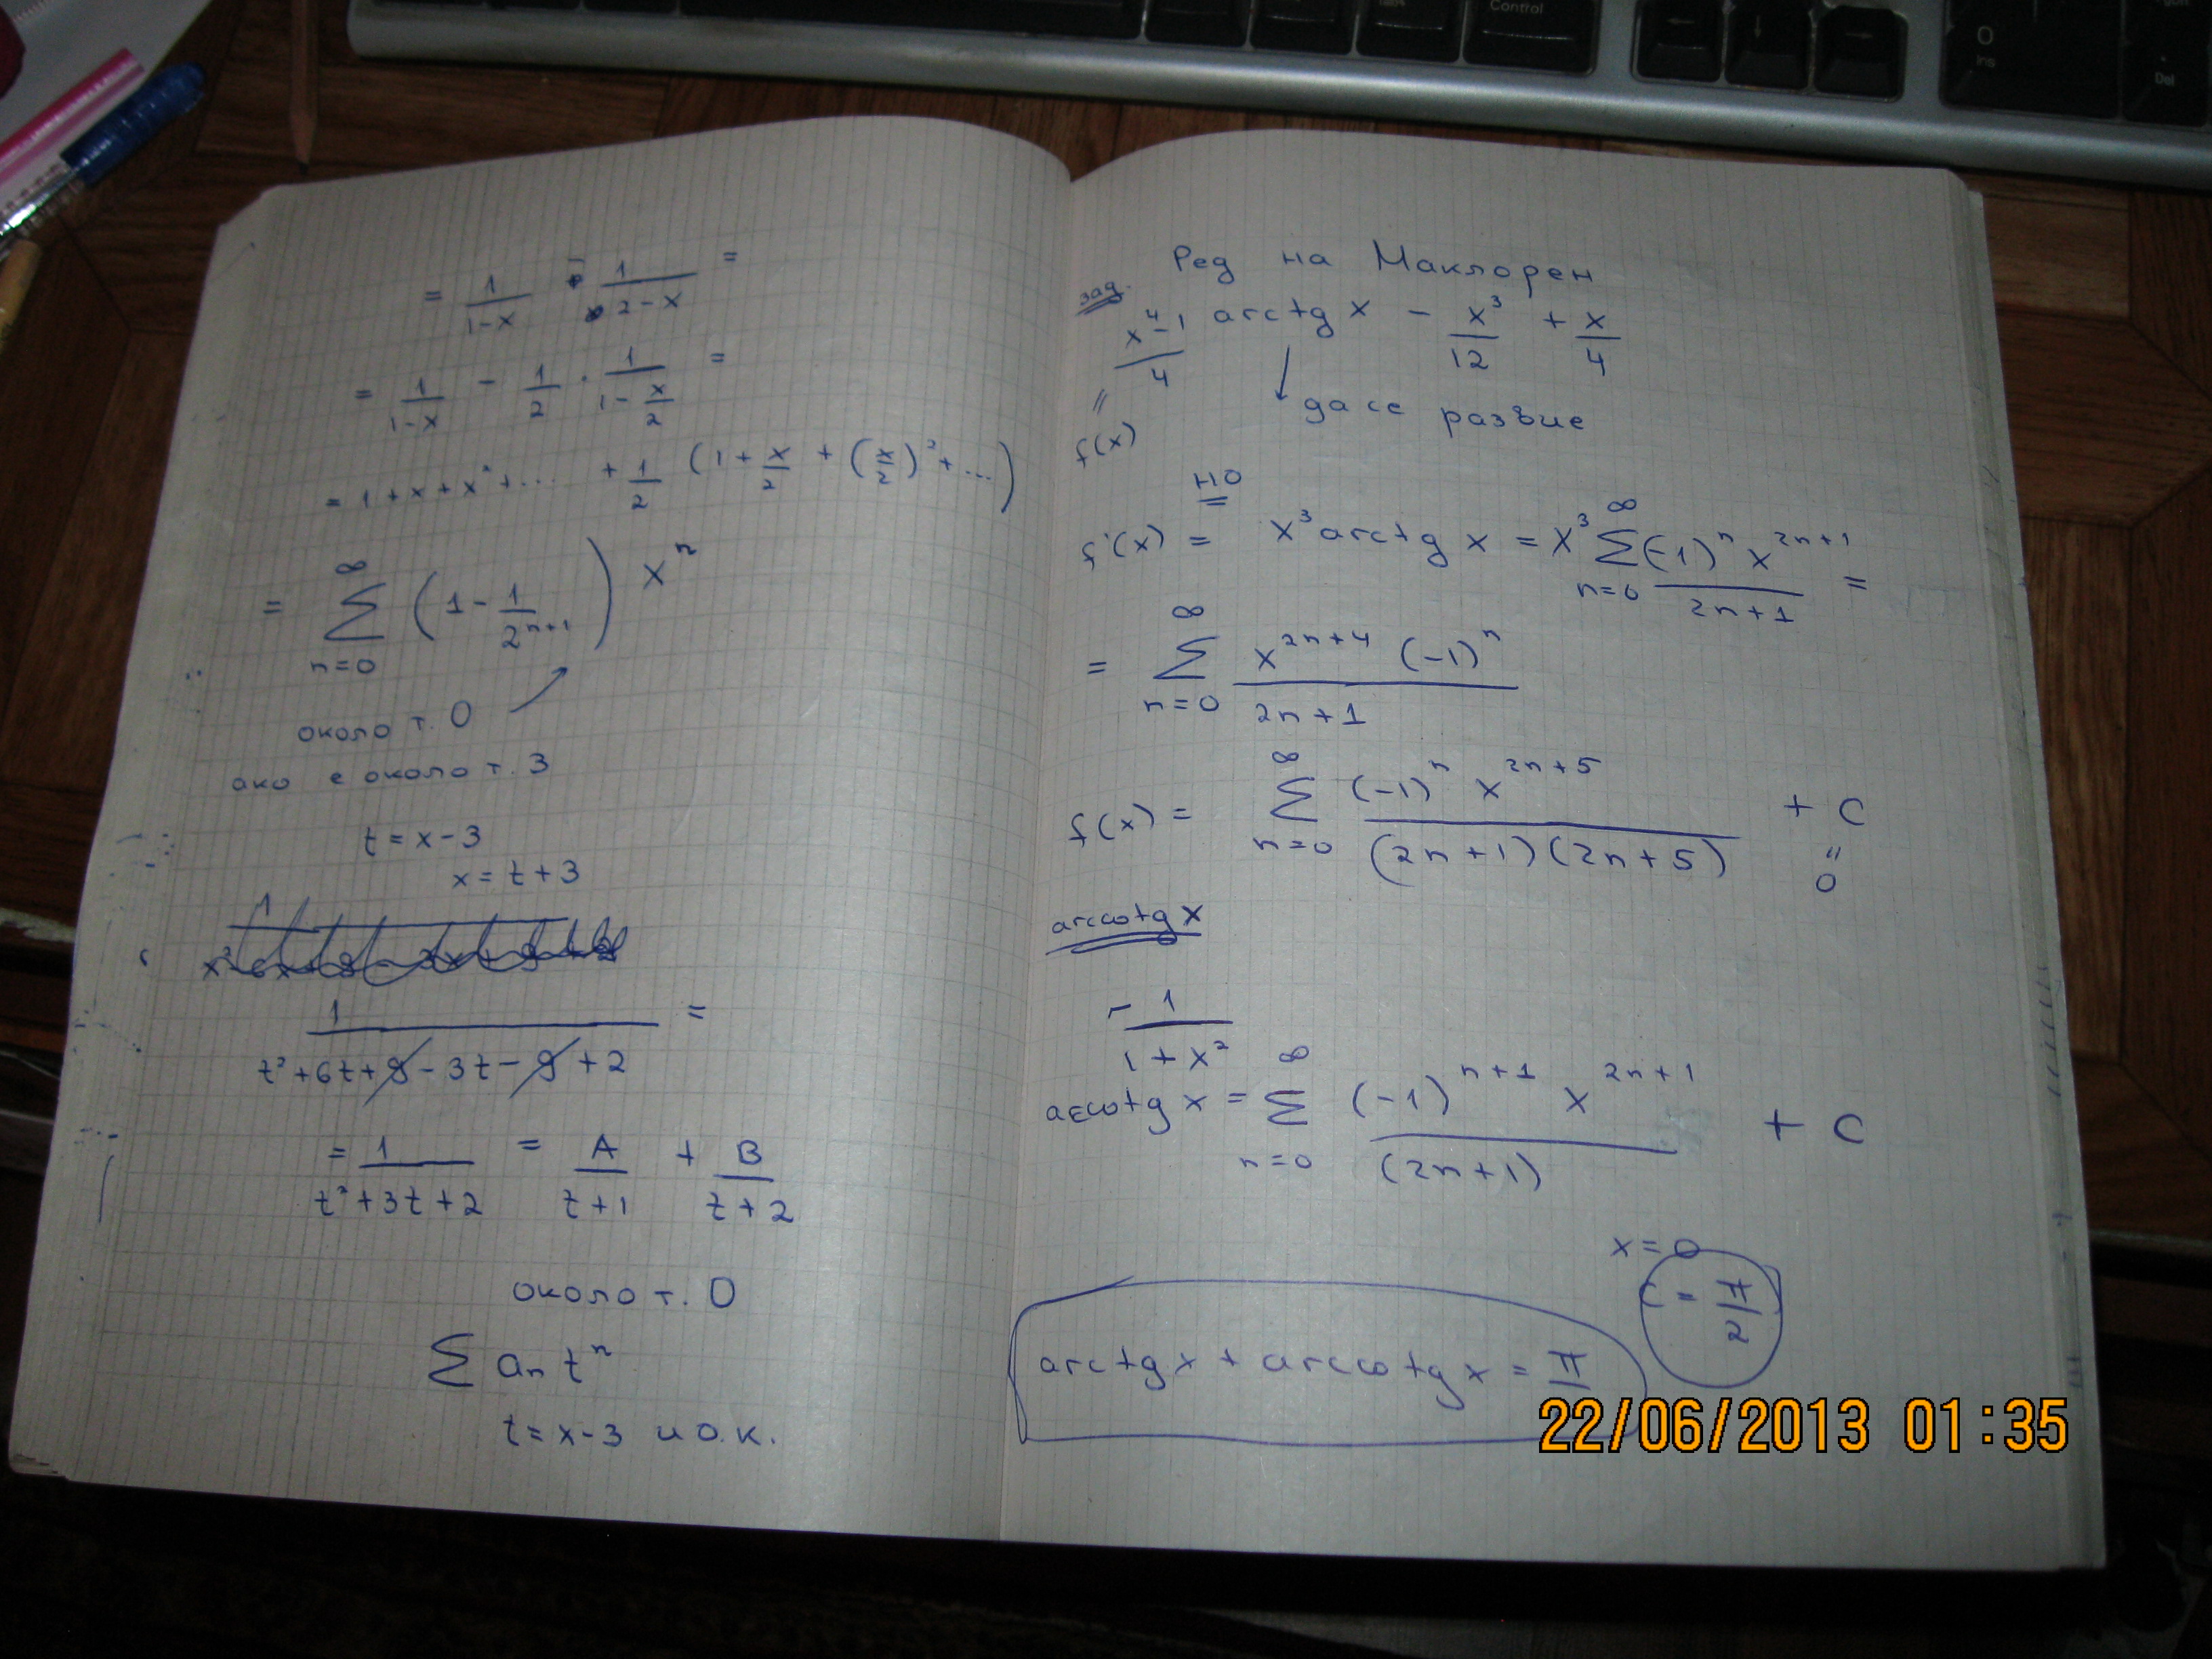 Control
0
Ins
Del
= 1/(1-x) - 1/(2-x) =
= 1/(1-x) - 1/2 . 1/(1 - x/2) =
= 1 + x + x² + ... + 1/2 (1 + x/2 + (x/2)² + ...)
= ∑_{n=0}^{∞} (1 - 1/2^{n+1}) x^n
около т. 0
ако е около т. 3
t = x-3
x = t+3
1/(t²+6t+9-3t-9+2) =
= 1/(t²+3t+2) = A/(t+1) + B/(t+2)
около т. 0
∑ a_n t^n
t = x-3 и о.к.
Ред на Маклорен
зад.
(x⁴-1)/4 arctg x - x³/12 + x/4
да се развие
=
f(x)
НО
f'(x) = x³ arctg x = x³ ∑_{n=0}^{∞} (-1)^n x^{2n+1}/(2n+1) =
= ∑_{n=0}^{∞} x^{2n+4} (-1)^n/(2n+1)
f(x) = ∑_{n=0}^{∞} (-1)^n x^{2n+5}/((2n+1)(2n+5)) + C
=
0
arccotg x
- 1/(1+x²)
arccotg x = ∑_{n=0}^{∞} (-1)^{n+1} x^{2n+1}/(2n+1) + C
x = 0
C = π/2
arctg x + arccotg x = π/
22/06/2013 01:35